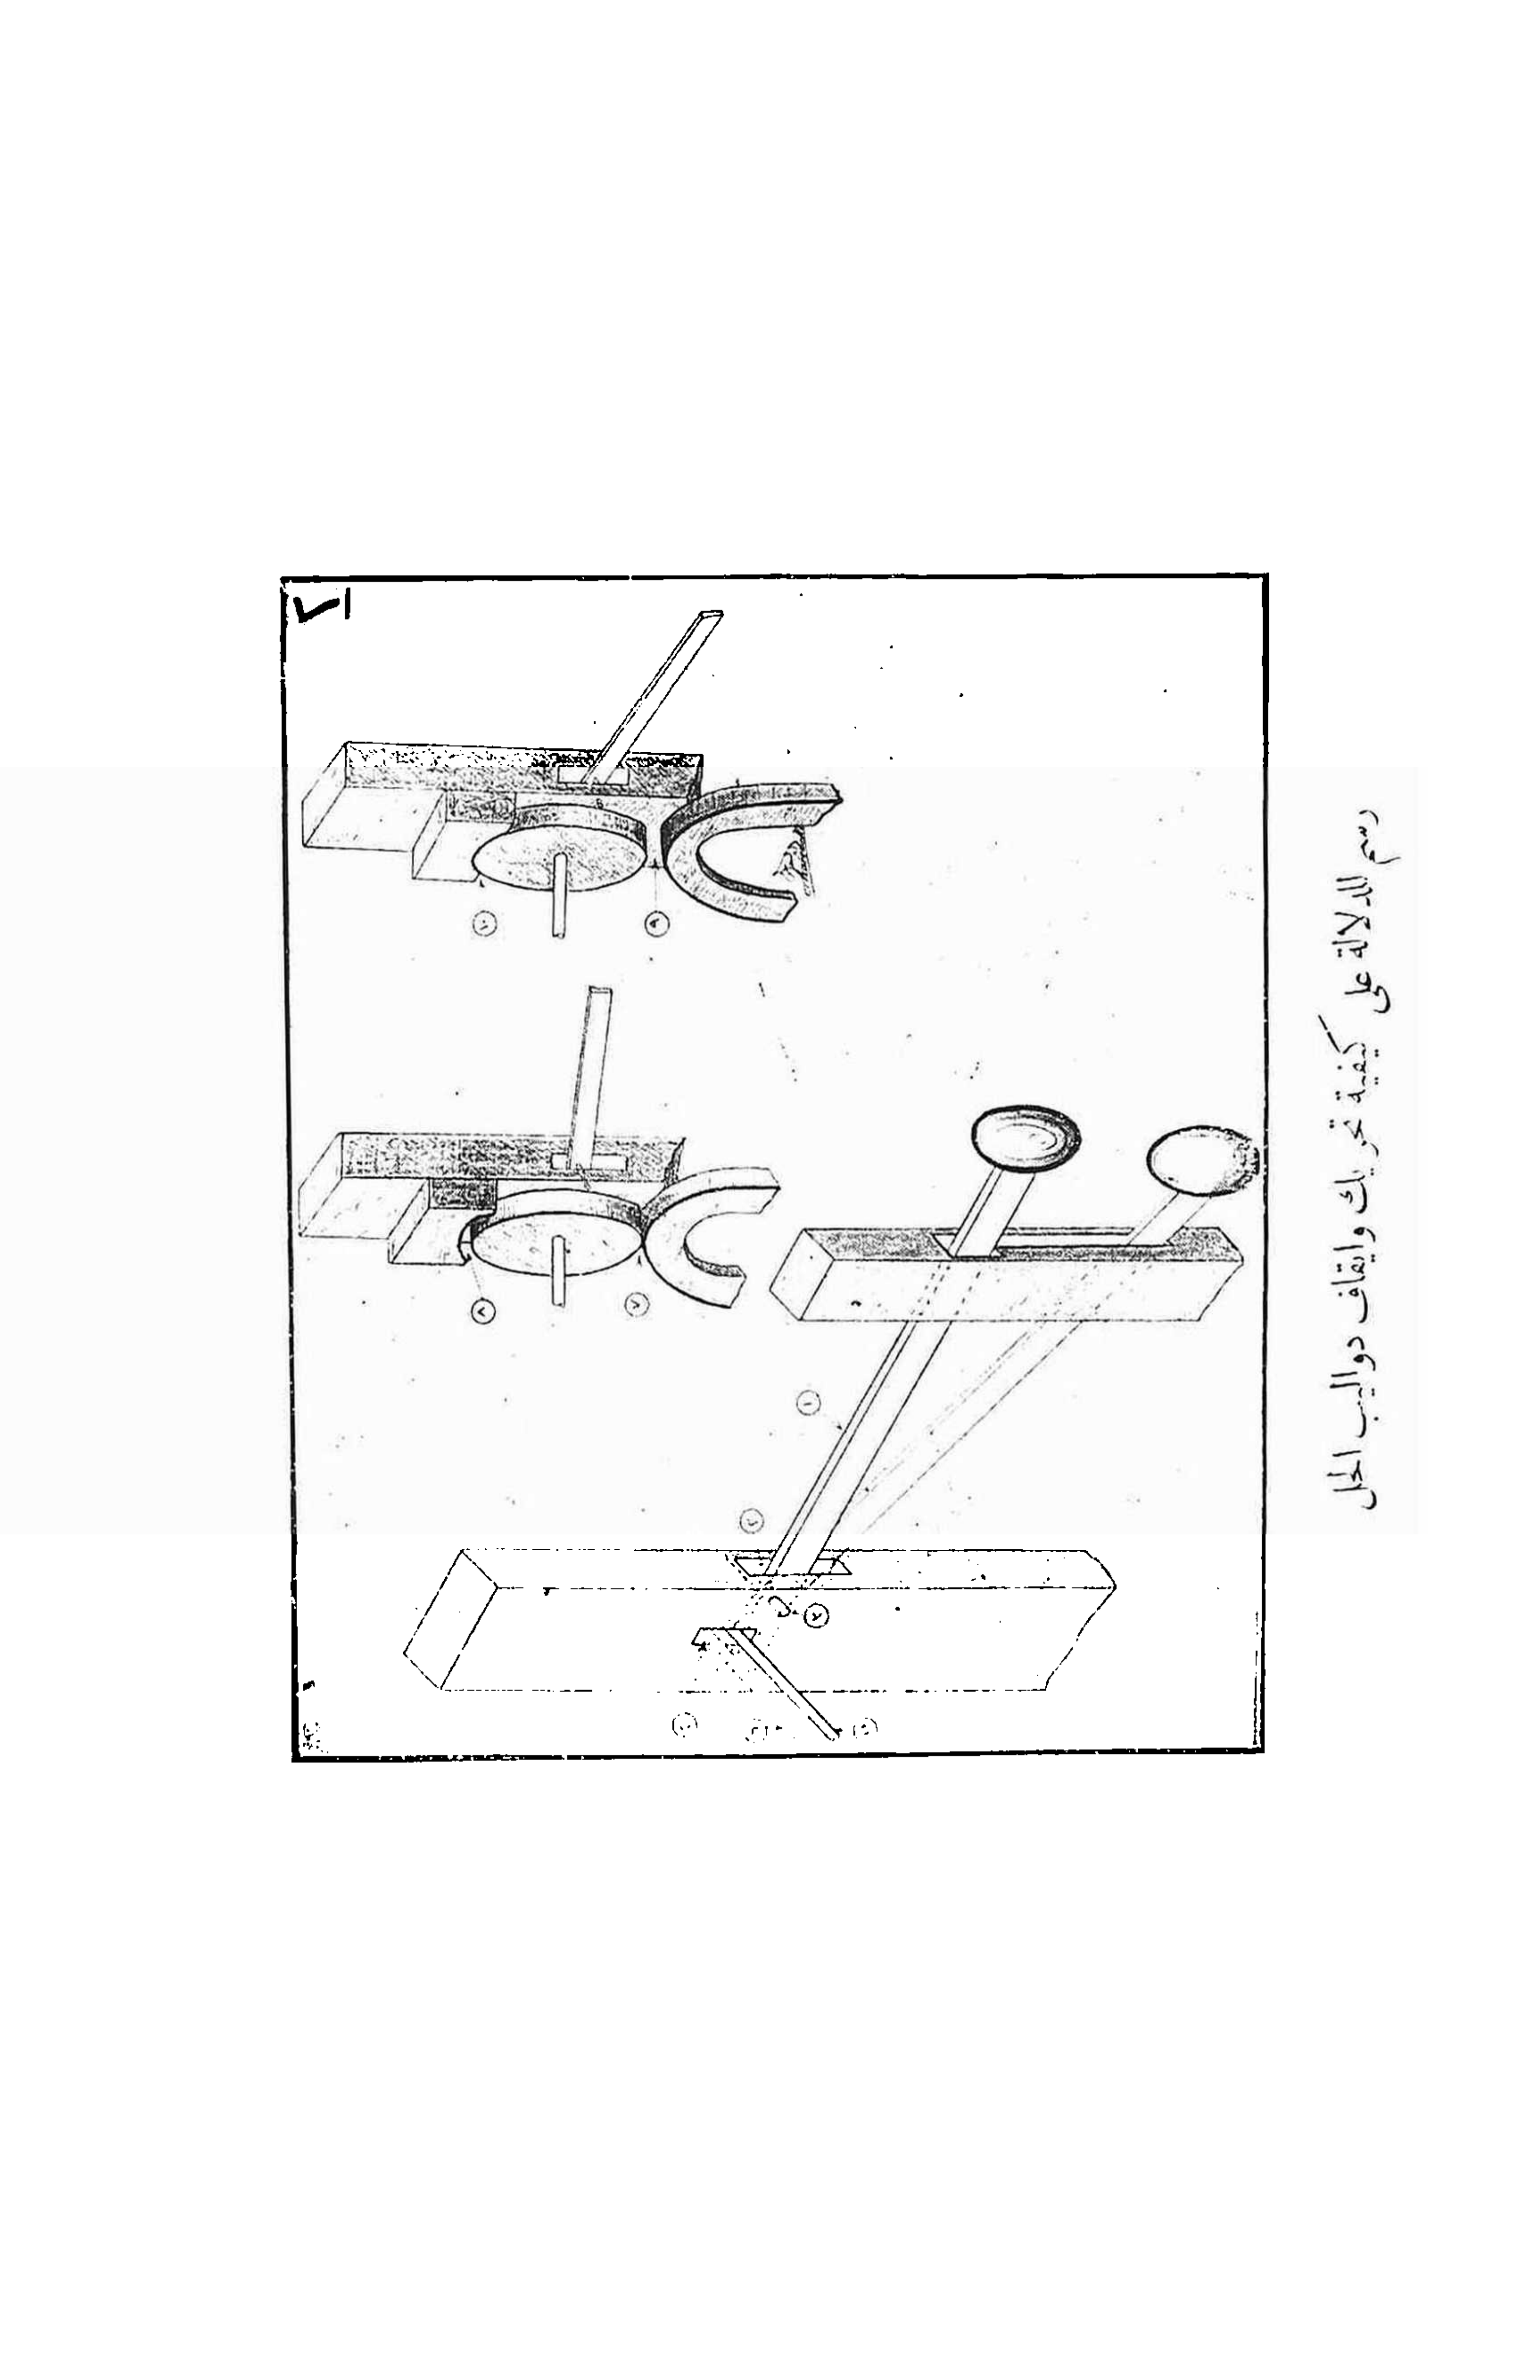 رسم للدلالة على كيفية تحريك وايقاف دواليب الحل
٩
٨
٧
١
٣